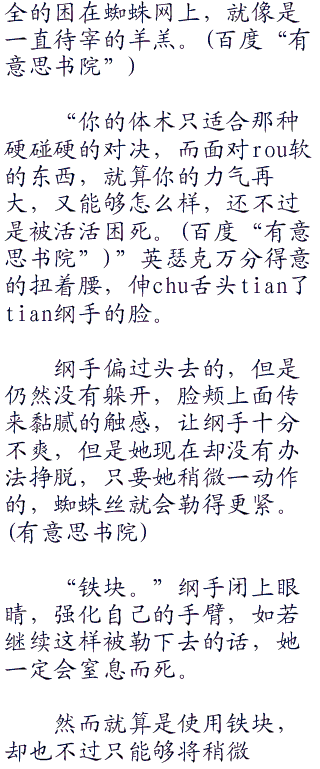 全的困在蜘蛛网上，就像是
一直待宰的羊羔。(百度“有
意思书院”)
“你的体术只适合那种
硬碰硬的对决，而面对rou软
的东西，就算你的力气再
大，又能够怎么样，还不过
是被活活困死。(百度“有意
思书院”)”英瑟克万分得意
的扭着腰，伸chu舌头tian了
tian纲手的脸。
纲手偏过头去的，但是
仍然没有躲开，脸颊上面传
来黏腻的触感，让纲手十分
不爽，但是她现在却没有办
法挣脱，只要她稍微一动作
的，蜘蛛丝就会勒得更紧。
(有意思书院)
“铁块。”纲手闭上眼
睛，强化自己的手臂，如若
继续这样被勒下去的话，她
一定会窒息而死。
然而就算是使用铁块，
却也不过只能够将稍微